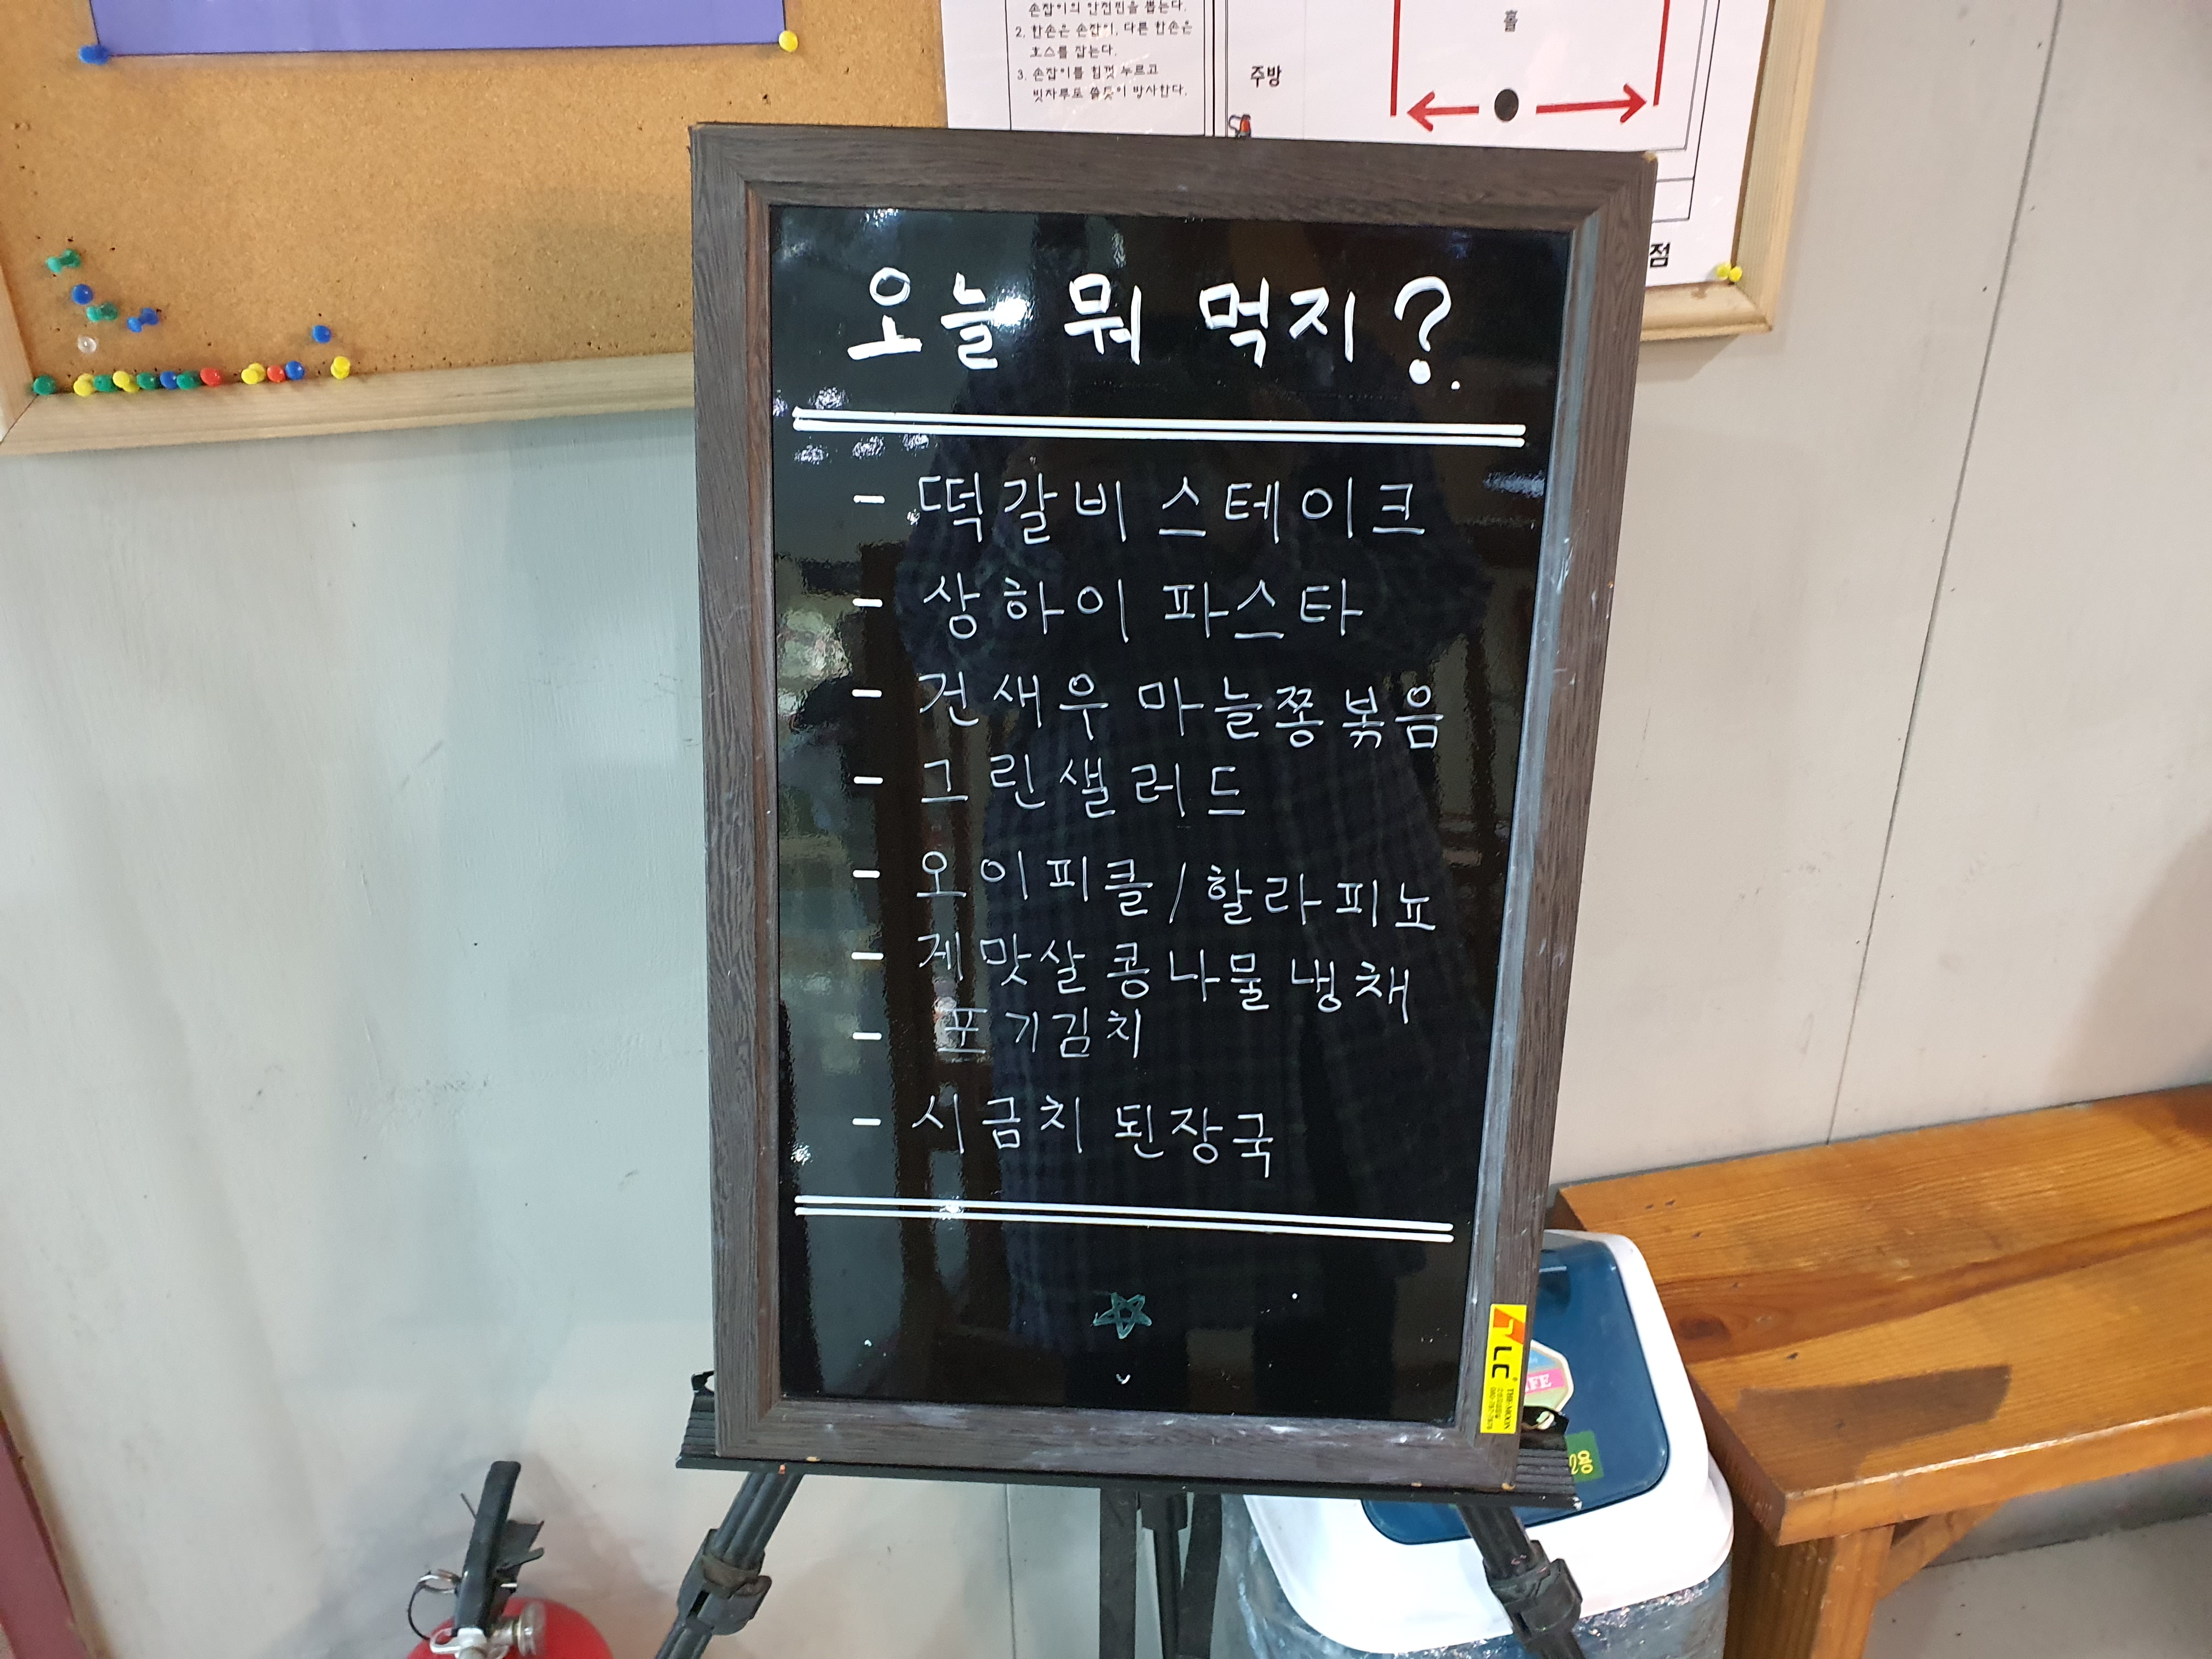 손잡이의 안전핀을 뽑는다.
2. 한손은 손잡이, 다른 한손은
호스를 잡는다.
3. 손잡이를 힘껏 누르고
빗자루로 쓸듯이 방사한다.
주방
홀
점
오늘 뭐 먹지?
- 떡갈비 스테이크
- 상하이 파스타
- 건새우 마늘쫑볶음
- 그린샐러드
- 오이피클/할라피뇨
- 게맛살 콩나물 냉채
- 포기김치
- 시금치 된장국
LC
THE-MOON